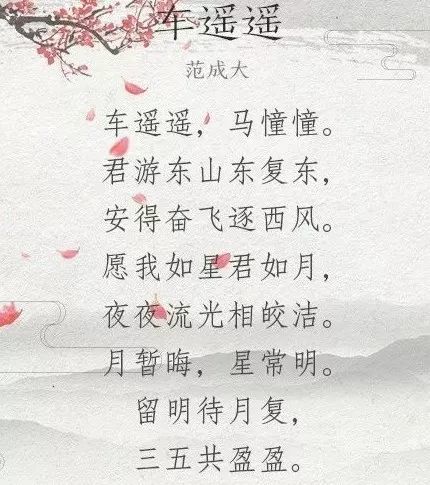 车遥遥
范成大
车遥遥，马憧憧。
君游东山东复东，
安得奋飞逐西风。
愿我如星君如月，
夜夜流光相皎洁。
月暂晦，星常明。
留明待月复，
三五共盈盈。